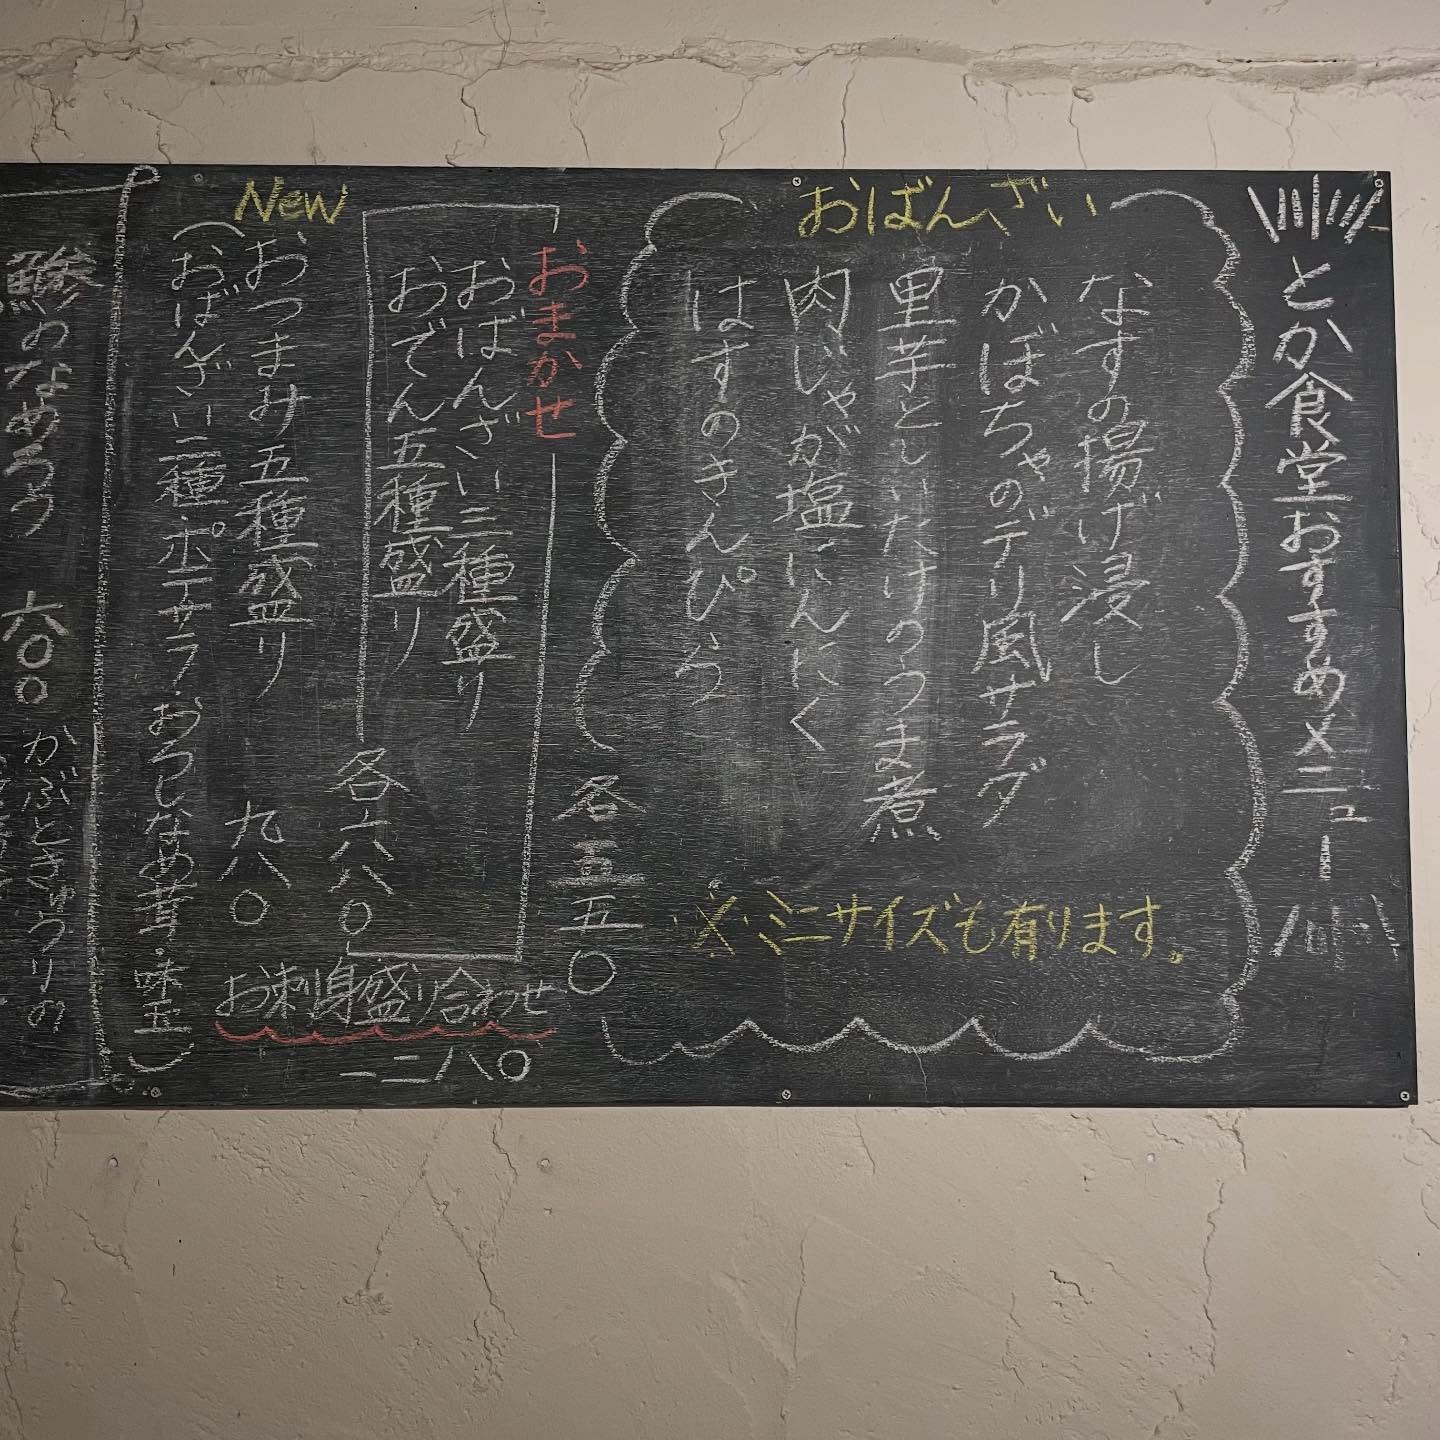 とか食堂おすすめメニュー
おばんざい
なすの揚げ浸し
かぼちゃのデリ風サラダ
里芋としいたけのうま煮
肉じゃが塩にんにく
はすのきんぴら
※ミニサイズも有ります。
各五五〇
おまかせ
おばんざい三種盛り
おでん五種盛り
各六八〇
New
おつまみ五種盛り
九八〇
(おばんざい二種・ポテサラ・おろしなめ茸・味玉)
お刺身盛り合わせ
一二八〇
鯵のなめろう 六〇〇
かぶときゅうりの